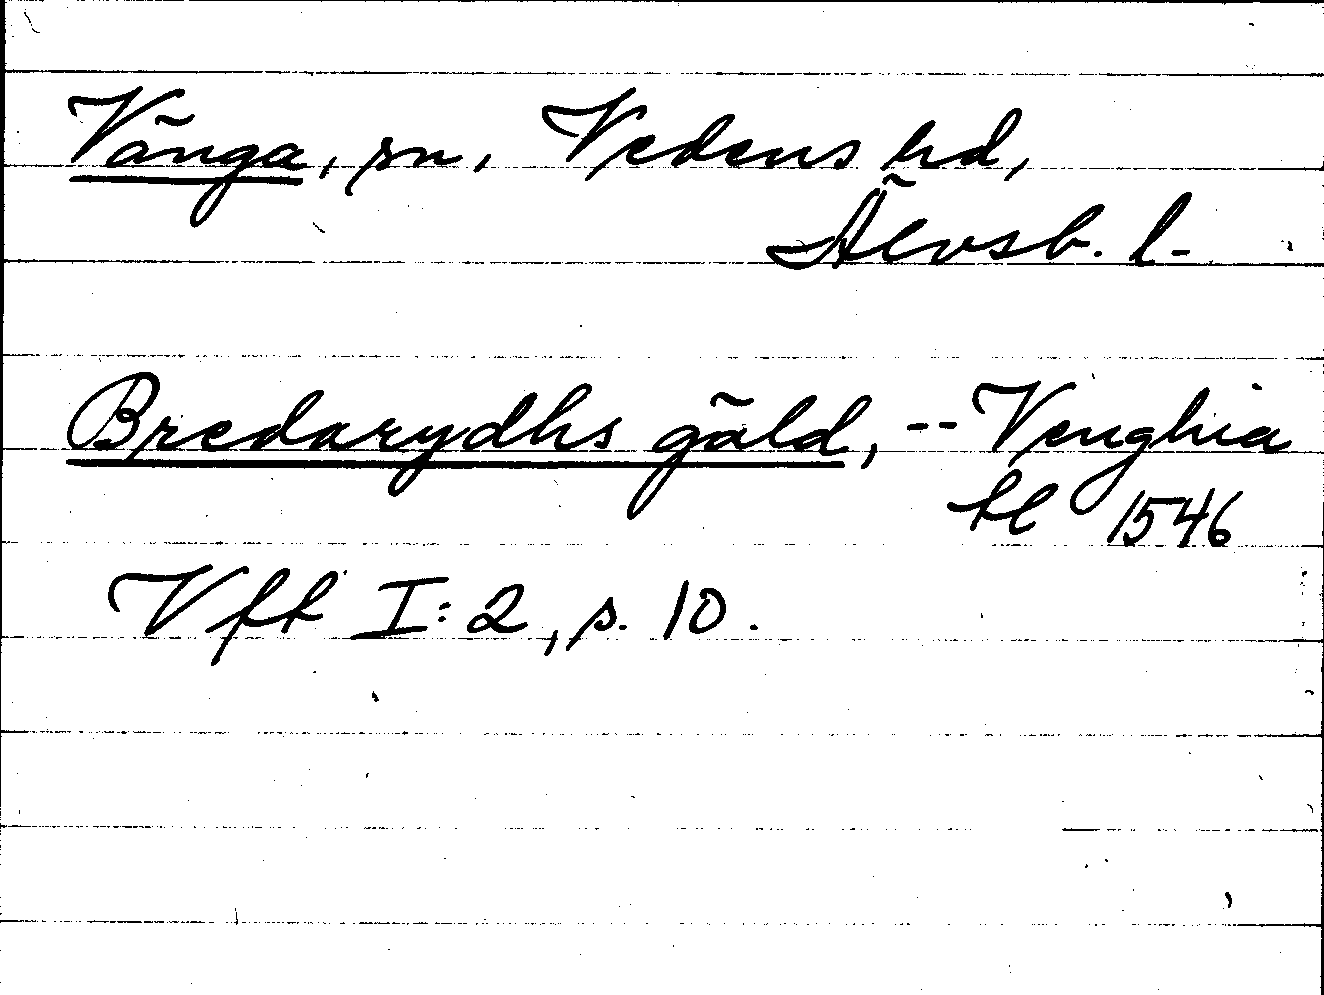 Vänga, sn, Vedens hd,
Älvsb. l.
Bredarydhs gäld, -- Venghia
kl 1546
Vft I: 2, s. 10.